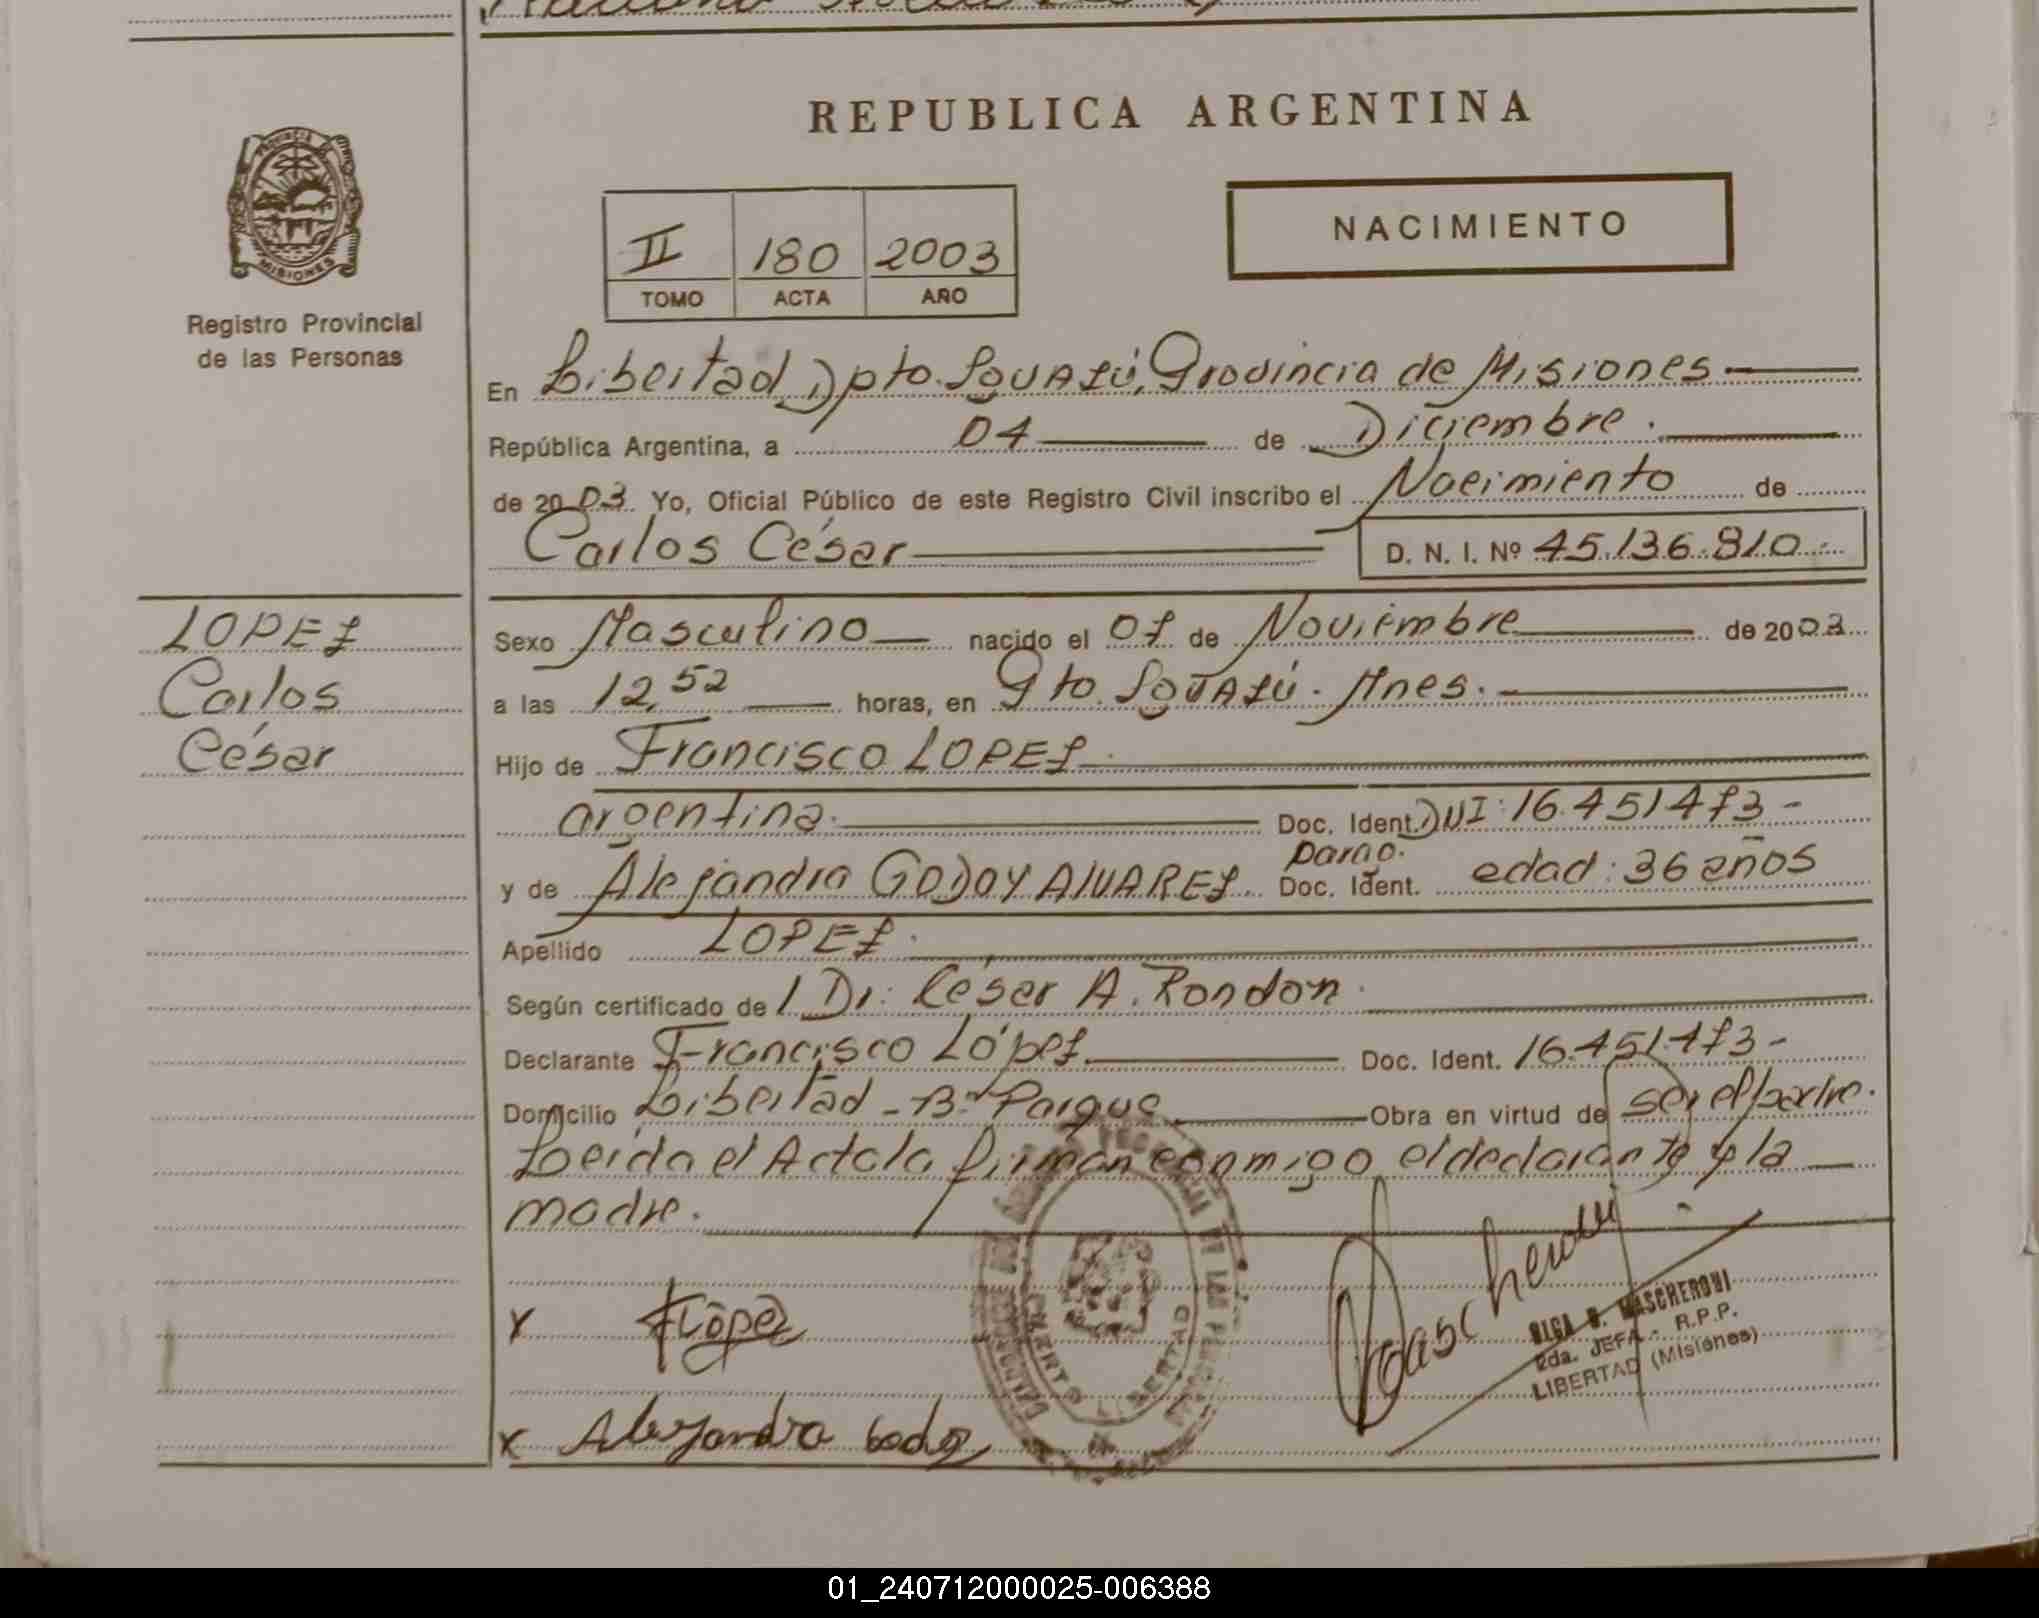 REPUBLICA ARGENTINA
PROVINCIA DE
MISIONES
Registro Provincial
de las Personas
NACIMIENTO
II 180 2003
TOMO ACTA AÑO
En Libertad, Dpto. IGUAZÚ, Provincia de Misiones
República Argentina, a 04 de Diciembre.
de 2003. Yo, Oficial Público de este Registro Civil inscribo el Nacimiento de
Carlos César D. N. I. Nº 45.136.810.-
LOPEZ
Carlos
César
Sexo Masculino nacido el 07 de Noviembre de 2003
a las 12,52 horas, en Pto. IGUAZÚ. Mnes.
Hijo de Francisco LOPEZ.
argentina. Doc. Ident. DNI: 16.451.473-
y de Alejandra GODOY ALVAREZ Parag. Doc. Ident. edad: 36 años
Apellido LOPEZ.
Según certificado de l Dr. César A. Rondon.
Declarante Francisco López Doc. Ident. 16.451.473-
Domicilio Libertad - Bº Parque Obra en virtud de ser el padre.
Leída el Acta la firman conmigo el declarante y la
madre.
x FLópez
x Alejandra Godoy
LIBERTAD
OLGA B. MASCHERONI
2da. JEFA - R.P.P.
LIBERTAD (Misiones)
01_240712000025-006388